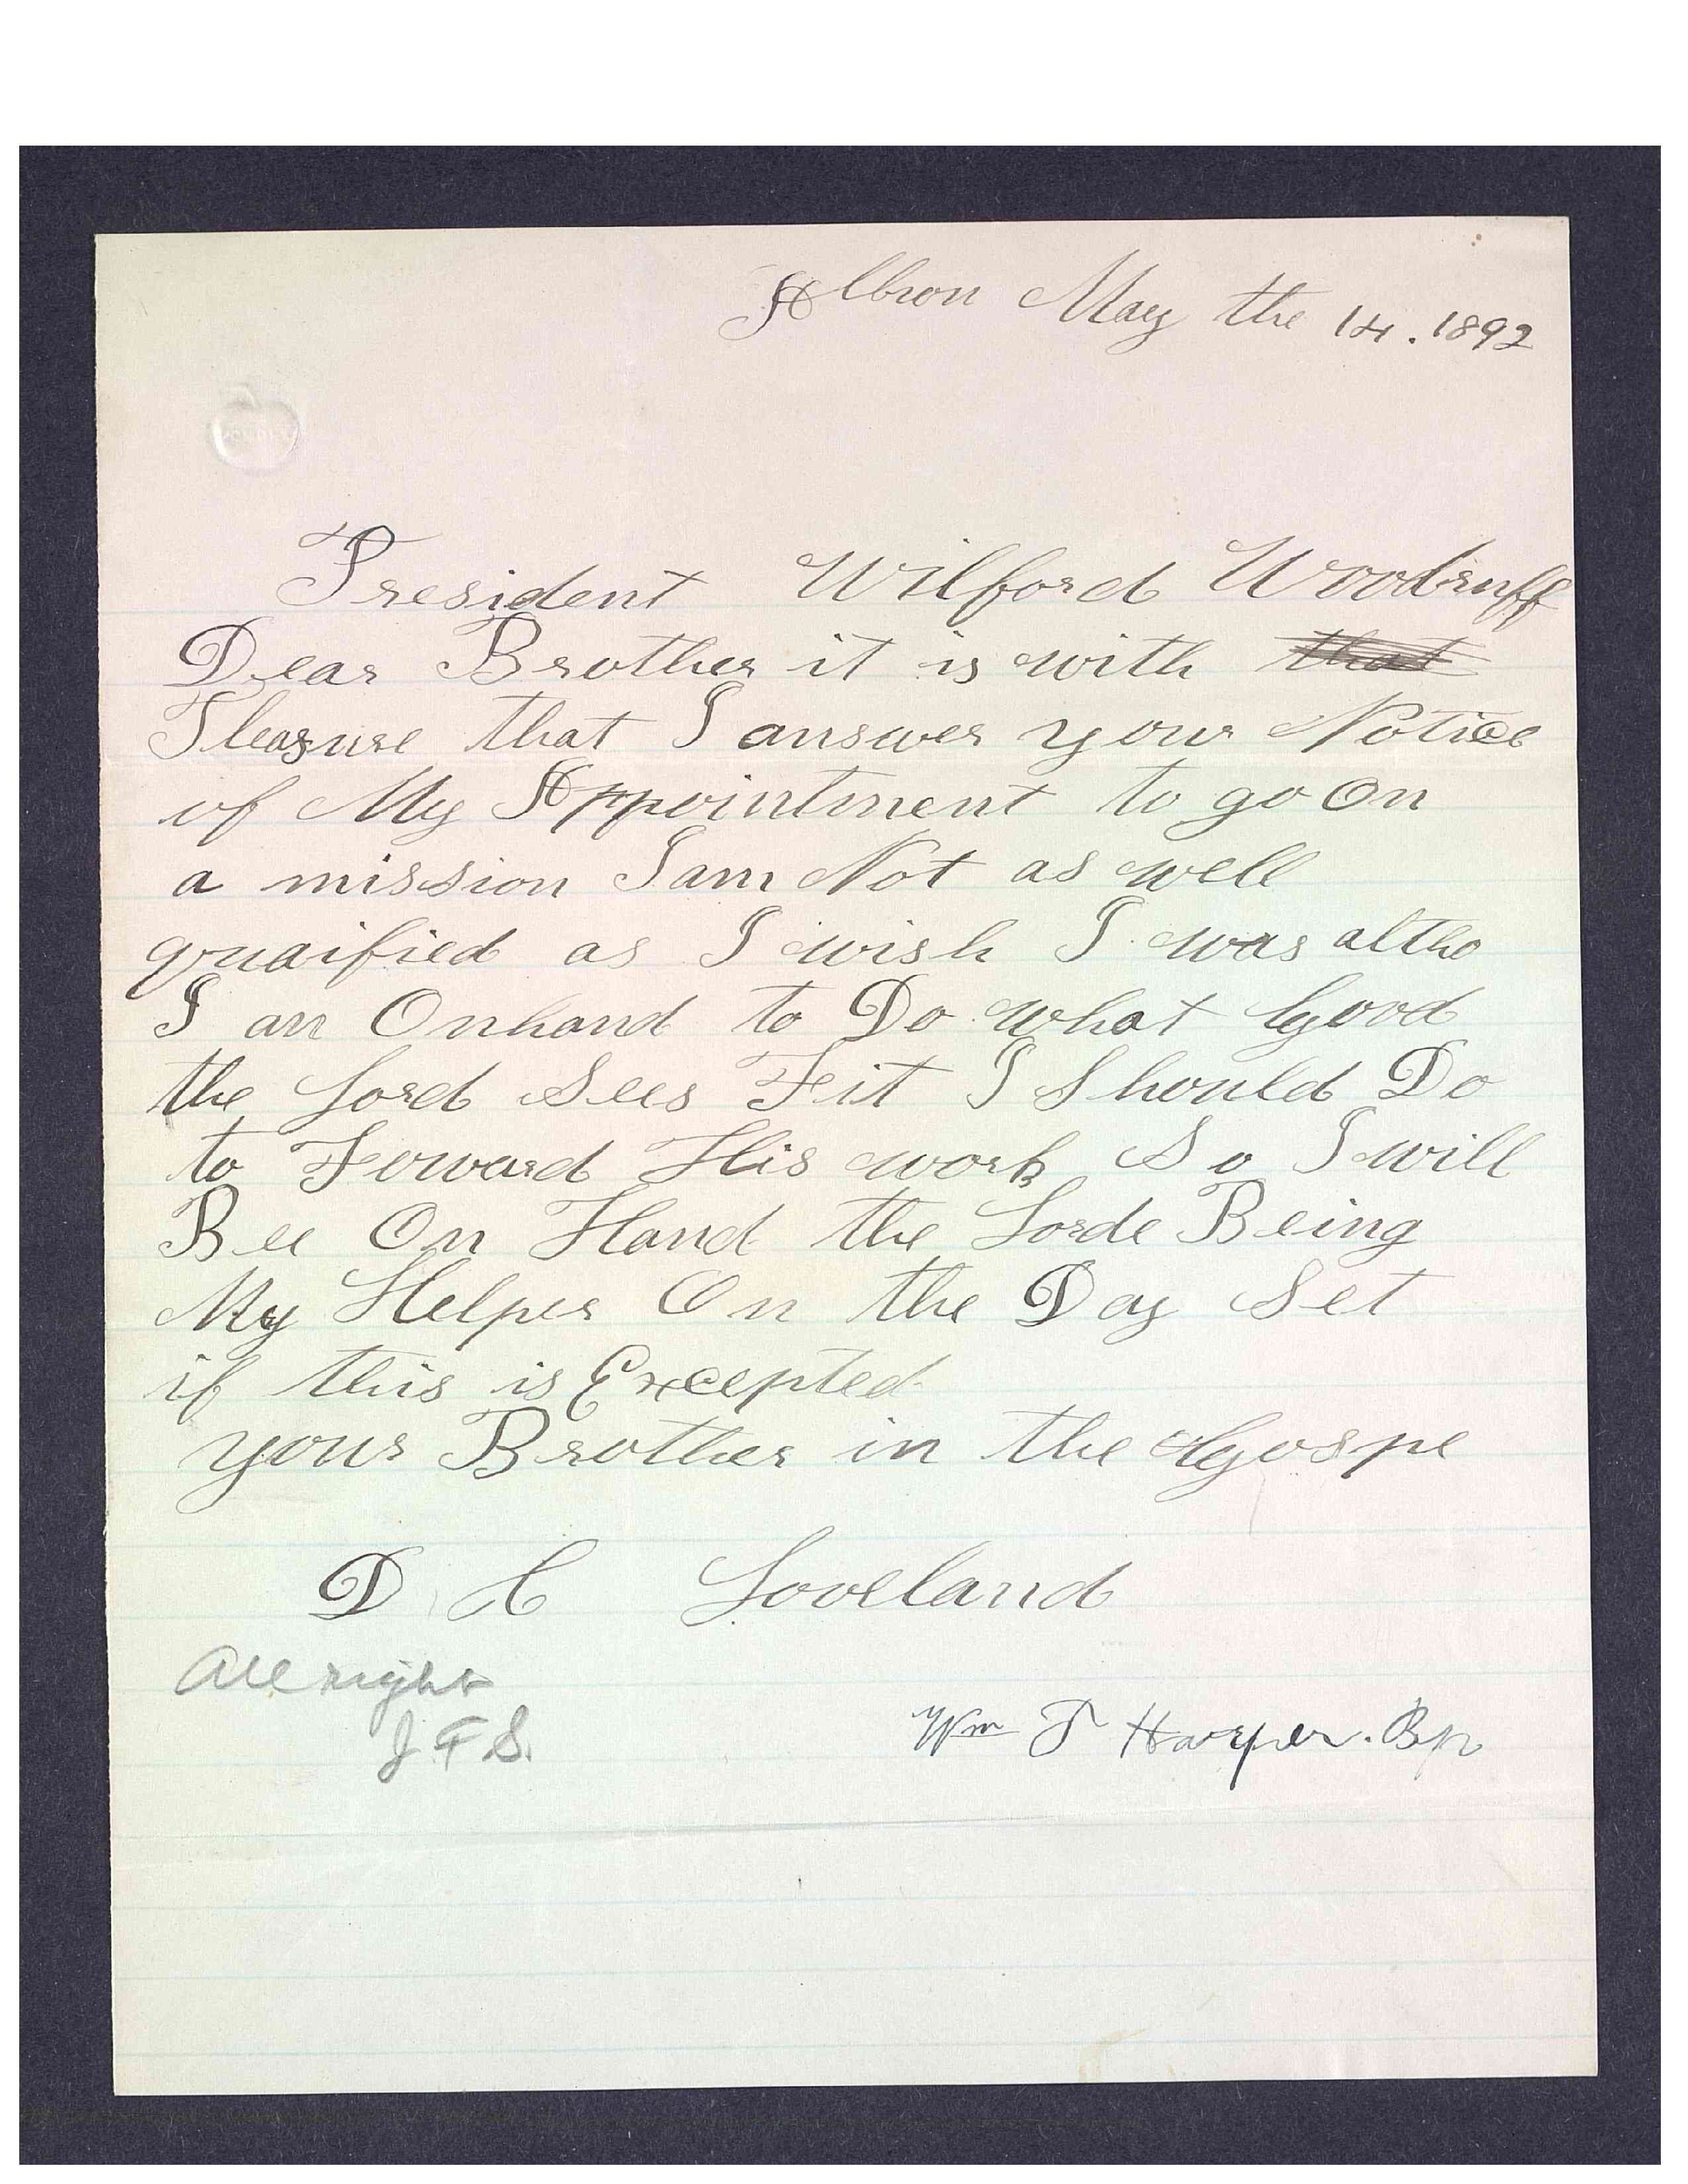 Albion May the 14. 1892
President Wilford Woodruff
Dear Brother it is with that
Pleasure that I answer your Notice
of My Appointment to go On
a mission I am Not as well
quaified as I wish I was altho
I an Onhand to Do what Good
the Lord Sees Fit I Should Do
to Forward His work So I will
Bee On Hand the Lorde Being
My Helper On the Day Set
if this is Excepted
your Brother in the Gospe
D H Loveland
All right
J. F. S.
Wm T Harper. Bp